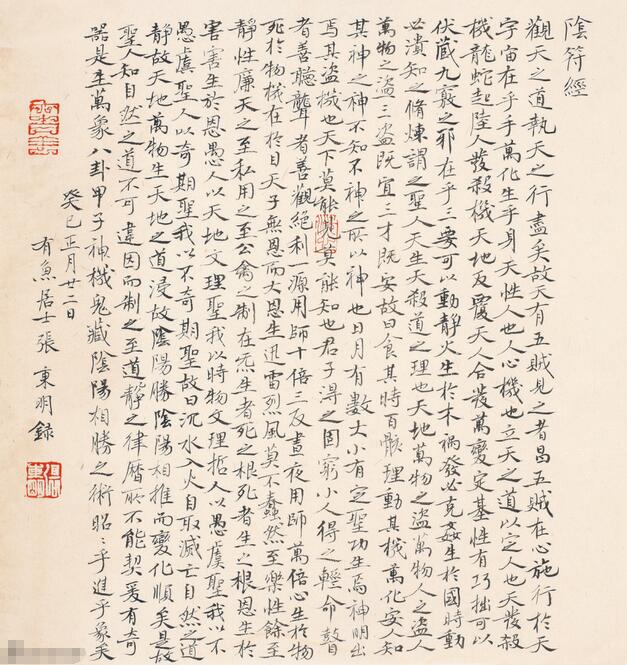 陰符經
觀天之道執天之行盡矣故天有五賊見之者昌五賊在心施行於天
宇宙在乎手萬化生乎身天性人也人心機也立天之道以定人也天發殺
機龍蛇起陸人發殺機天地反覆天人合發萬變定基性有巧拙可以
伏藏九竅之邪在乎三要可以動靜火生於木禍發必克姦生於國時動
必潰知之脩煉謂之聖人天生天殺道之理也天地萬物之盜萬物人之盜人
萬物之盜三盜既宜三才既安故曰食其時百骸理動其機萬化安人知
其神之神不知不神之所以神也日月有數大小有定聖功生焉神明出
焉其盜機也天下莫能見莫能知也君子得之固窮小人得之輕命瞽
者善聽聾者善觀絕利一源用師十倍三反晝夜用師萬倍心生於物
死於物機在於目天子無恩而大恩生迅雷烈風莫不蠢然至樂性餘至
靜性廉天之至私用之至公禽之制在炁生者死之根死者生之根恩生於
害害生於恩愚人以天地文理聖我以時物文理哲人以愚虞聖我以不
愚虞聖人以奇期聖我以不奇期聖故曰沉水入火自取滅亡自然之道
靜故天地萬物生天地之道浸故陰陽勝陰陽相推而變化順矣是故
聖人知自然之道不可違因而制之至道靜之律曆所不能契爰有奇
器是生萬象八卦甲子神機鬼藏陰陽相勝之術昭〻乎進乎象矣
癸巳正月廿二日
有魚居士張東明錄